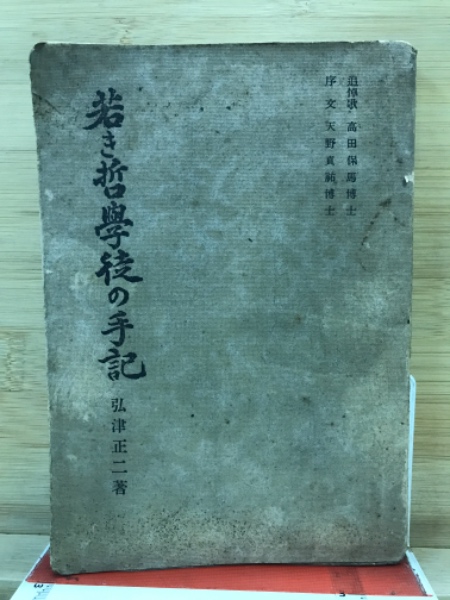 追悼歌 高田保馬博士
序文 天野貞祐博士
若き哲學徒の手記
弘津正二著